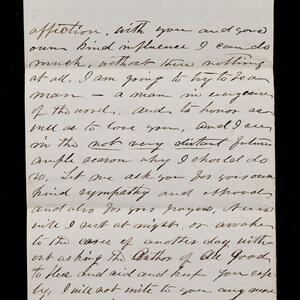 affection, with you and your
own kind influence I can do
much, without these nothing
at all. I am going to try to be a
man — a man in every sense
of the word, and to honor as
well as to love you, and I see
in the not very distant future
ample reason why I should do
so. Let me ask you for your own
kind sympathy and
and also for your prayers, Never
will I rest at night, or awake
to the cares of another day with
out asking the Author of all Good
to bless and aid and keep you
by, I will not write to you any more